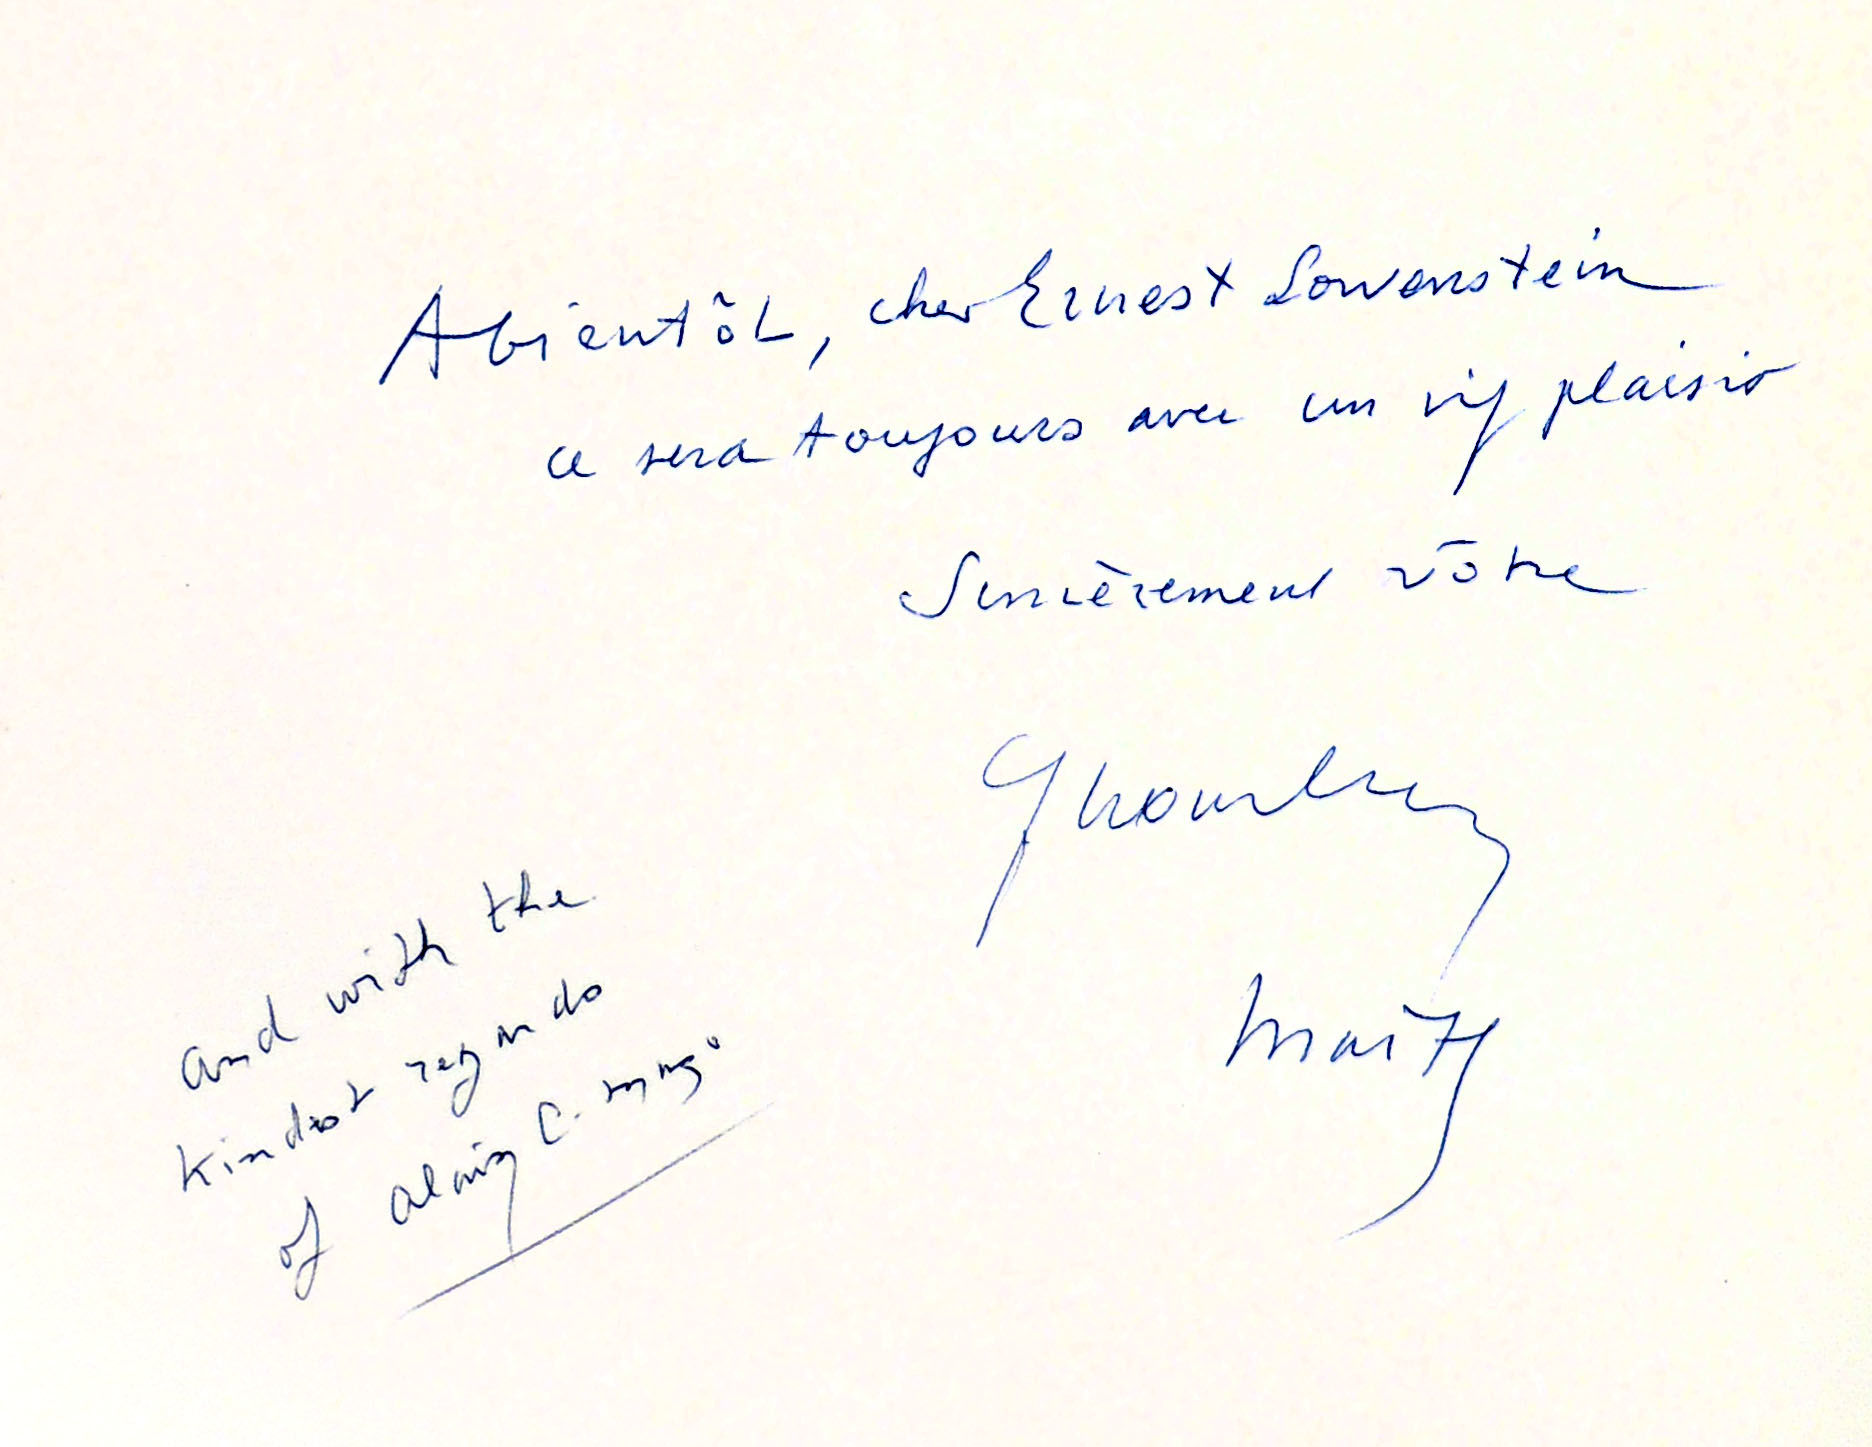 A bientôt, cher Ernest Lowenstein
ce sera toujours avec un vif plaisir
Sincèrement vôtre
and with the
kindest regards
of